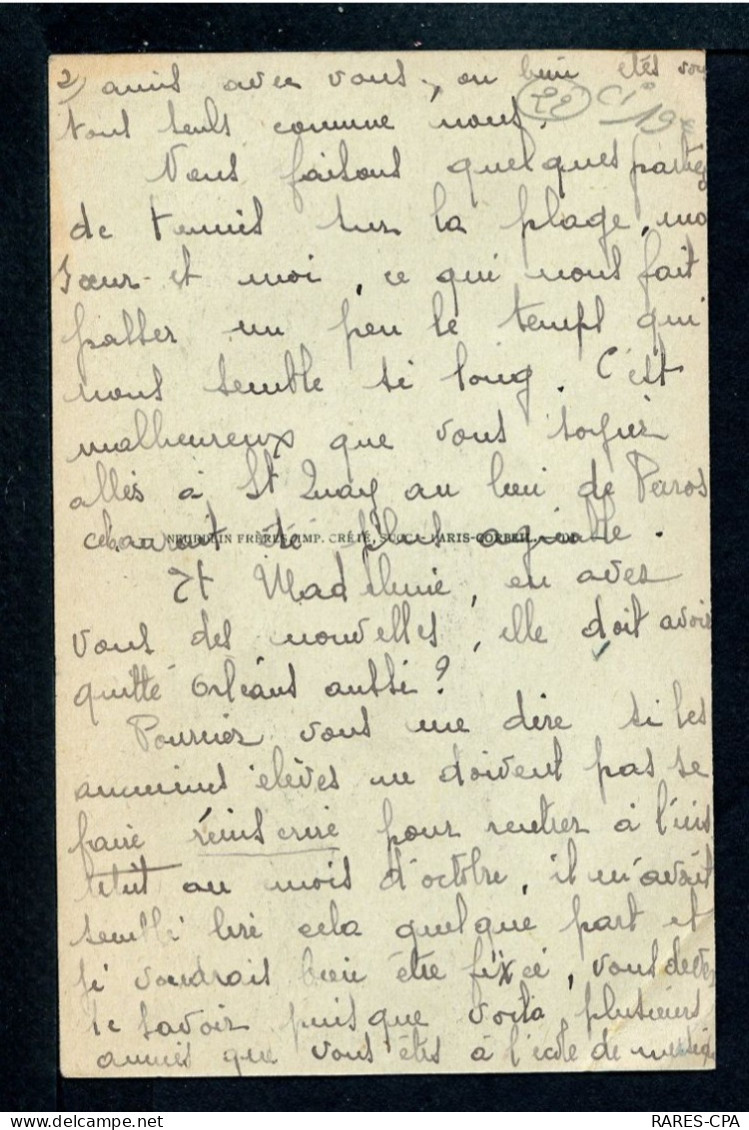 2) amis avec vous, ou bien etês vou
22 CI° 19
tous seuls comme nous.
Nous faisons quelques parties
de tennis sur la plage, ma
sœur et moi, ce qui nous fait
passer un peu le temps qui
nous semble si long. C'est
malheureux que vous soyiez
allés à St Quay au lieu de Peros
ça aurait été plus agréable.
NEURDEIN FRÈRES, IMP. CRÉTÉ, SUCC. PARIS-CORBEIL
Et Madeleine, en avez
vous des nouvelles, elle doit avoir
quitté Orléans aussi?
Pourriez vous me dire si les
anciens élèves ne doivent pas se
faire réinscrire pour rentrer à l'ins
titut au mois d'octobre, il m'avait
semblé lire cela quelque part et
je voudrais bien être fixée, vous devez
le savoir puisque voilà plusieurs
années que vous êtes à l'école de musiq
RARES-CPA